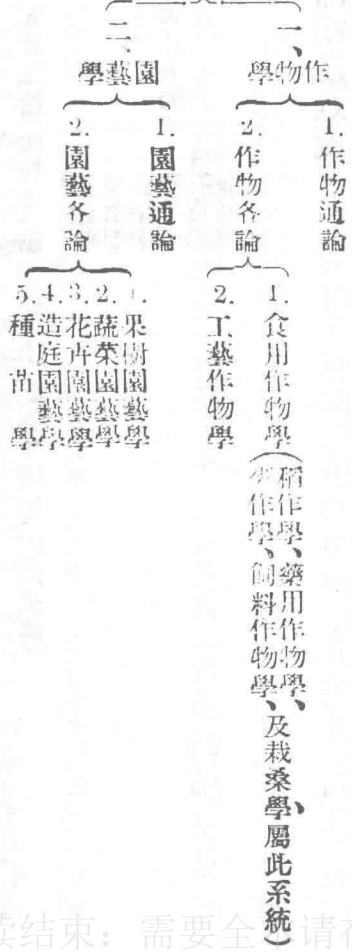 一、作物學
1. 作物通論
2. 作物各論
1. 食用作物學(稻作學、藥用作物學、
作學、飼料作物學、及栽桑學、屬此系統)
2. 工藝作物學
二、園藝學
1. 園藝通論
2. 園藝各論
1. 果樹園藝學
2. 蔬菜園藝學
3. 花卉園藝學
4. 造庭園藝學
5. 種苗學
结束：需要全
请